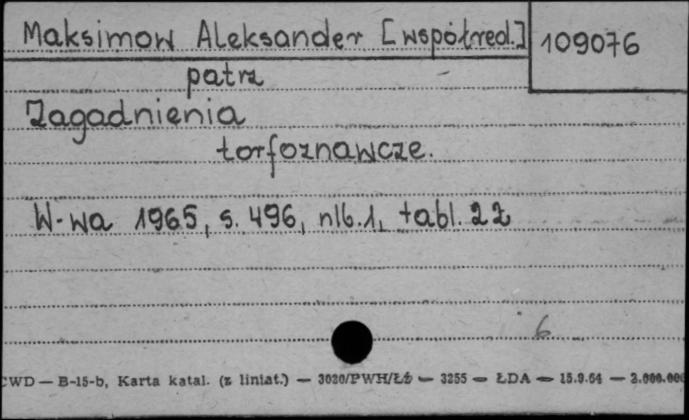 Maksimow Aleksander [współred.]
109076
patrz
Zagadnienia
torfoznawcze.
W-wa 1965, s. 496, nlb. 1, tabl. 22
6
CWD — B-15-b, Karta katal. (z liniat.) — 3020/PWH/Łź — 3255 — ŁDA — 15.9.64 — 2.000.000